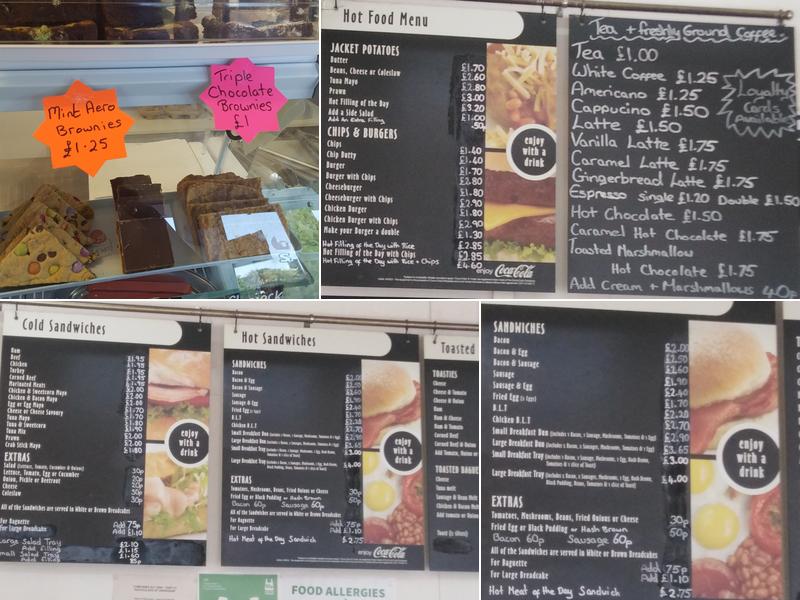 Mint Aero
Brownies
£1.25
Triple
Chocolate
Brownies
£1
Hot Food Menu
JACKET POTATOES
Butter £1.70
Beans, Cheese or Coleslaw £2.60
Tuna Mayo £2.80
Prawn £3.00
Hot Filling of the Day £3.20
Add a Side Salad £1.00
Add An Extra Filling 50p
CHIPS & BURGERS
Chips £1.40
Chip Butty £1.40
Burger £1.80
Burger with Chips £2.80
Cheeseburger £1.80
Cheeseburger with Chips £2.90
Chicken Burger £1.80
Chicken Burger with Chips £2.90
Make your Burger a double £1.30
Hot Filling of the Day with Rice £2.85
Hot Filling of the Day with Chips £2.85
Hot Filling of the Day with Rice + Chips £4.60
enjoy
with a
drink
enjoy Coca-Cola
Tea + freshly Ground Coffee
Tea £1.00
White Coffee £1.25
Americano £1.25
Cappucino £1.50
Latte £1.50
Vanilla Latte £1.75
Caramel Latte £1.75
Gingerbread Latte £1.75
Espresso single £1.20 Double £1.50
Hot Chocolate £1.50
Caramel Hot Chocolate £1.75
Toasted Marshmallow
Hot Chocolate £1.75
Add Cream + Marshmallows 40p
Loyalty
Cards
Available
Cold Sandwiches
Ham £1.95
Beef £1.95
Chicken £1.95
Turkey £1.95
Corned Beef £1.95
Marinated Meats £1.95
Chicken & Sweetcorn Mayo £2.00
Chicken & Bacon Mayo £2.00
Egg or Egg Mayo £1.60
Cheese or Cheese Savoury £1.70
Tuna Mayo £1.70
Tuna & Sweetcorn £1.80
Tuna Mix £1.90
Prawn £2.00
Crab Stick Mayo £1.80
EXTRAS
Salad (Lettuce, Tomato, Cucumber & Onion) 30p
Lettuce, Tomato, Egg or Cucumber 20p
Onion, Pickle or Beetroot 20p
Cheese 30p
Coleslaw 30p
All of the Sandwiches are served in White or Brown Breadcakes
For Baguette Add 75p
For Large Breadcake Add £1.10
Large Salad Tray £2.10
Add Filling £1.15
Small Salad Tray £1.60
Add Filling 85p
enjoy
with a
drink
Hot Sandwiches
SANDWICHES
Bacon £2.00
Bacon & Egg £2.50
Bacon & Sausage £2.60
Sausage £1.90
Sausage & Egg £2.40
Fried Egg (2 Eggs) £1.70
B.L.T £2.20
Chicken B.L.T £2.70
Small Breakfast Bun £2.90
Large Breakfast Bun £3.65
Small Breakfast Tray £3.00
Large Breakfast Tray £4.00
EXTRAS
Tomatoes, Mushrooms, Beans, Fried Onions or Cheese 30p
Fried Egg or Black Pudding or Hash Brown 50p
Bacon 60p Sausage 60p
All of the Sandwiches are served in White or Brown Breadcakes
For Baguette Add 75p
For Large Breadcake Add £1.10
Hot Meat of the Day Sandwich £2.75
enjoy
with a
drink
enjoy Coca-Cola
Toasted
TOASTIES
Cheese
Cheese & Tomato
Cheese & Onion
Ham
Ham & Cheese
Ham & Tomato
Corned Beef
Corned Beef & Onion
TOASTED BAGU
Cheese
Tuna melt
FOOD ALLERGIES
SANDWICHES
Bacon £2.00
Bacon & Egg £2.50
Bacon & Sausage £2.60
Sausage £1.90
Sausage & Egg £2.40
Fried Egg (2 Eggs) £1.70
B.L.T £2.20
Chicken B.L.T £2.70
Small Breakfast Bun (Includes 1 Bacon, 1 Sausage, Mushrooms, Tomatoes & 1 Egg) £2.90
Large Breakfast Bun £3.65
Small Breakfast Tray £3.00
Large Breakfast Tray £4.00
EXTRAS
Tomatoes, Mushrooms, Beans, Fried Onions or Cheese 30p
Fried Egg or Black Pudding or Hash Brown 50p
Bacon 60p Sausage 60p
All of the Sandwiches are served in White or Brown Breadcakes
For Baguette Add 75p
For Large Breadcake Add £1.10
Hot Meat of the Day Sandwich £2.75
enjoy
with a
drink